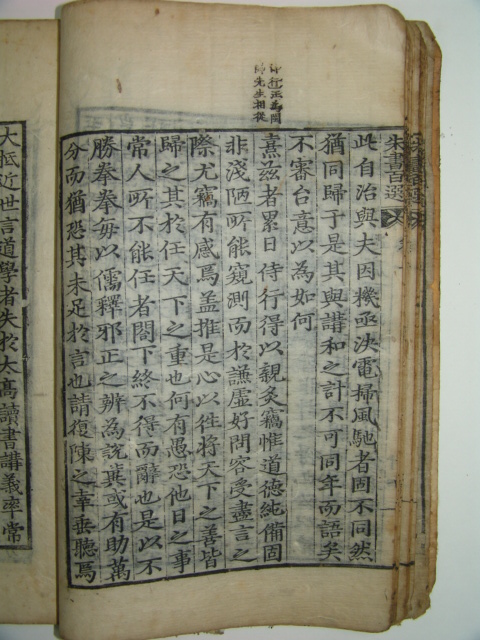 朱書百選
行汪為閩
帥先生相從
此自治與夫因機亟決電掃風馳者固不同然
猶同歸于是其與講和之計不可同年而語矣
不審台意以為如何
熹玆者累日侍行得以親炙竊惟道德純備固
非淺陋所能窺測而於謙虛好問容受盡言之
際尤竊有感焉盖推是心以徃將天下之善皆
歸之其於任天下之重也何有愚恐他日之事
常人所不能任者閤下終不得而辭也是以不
勝拳拳毎以儒釋邪正之辨為說冀或有助萬
分而猶恐其未足於言也請復陳之幸垂聽焉
大抵近世言道學者失於太高讀書講義率常